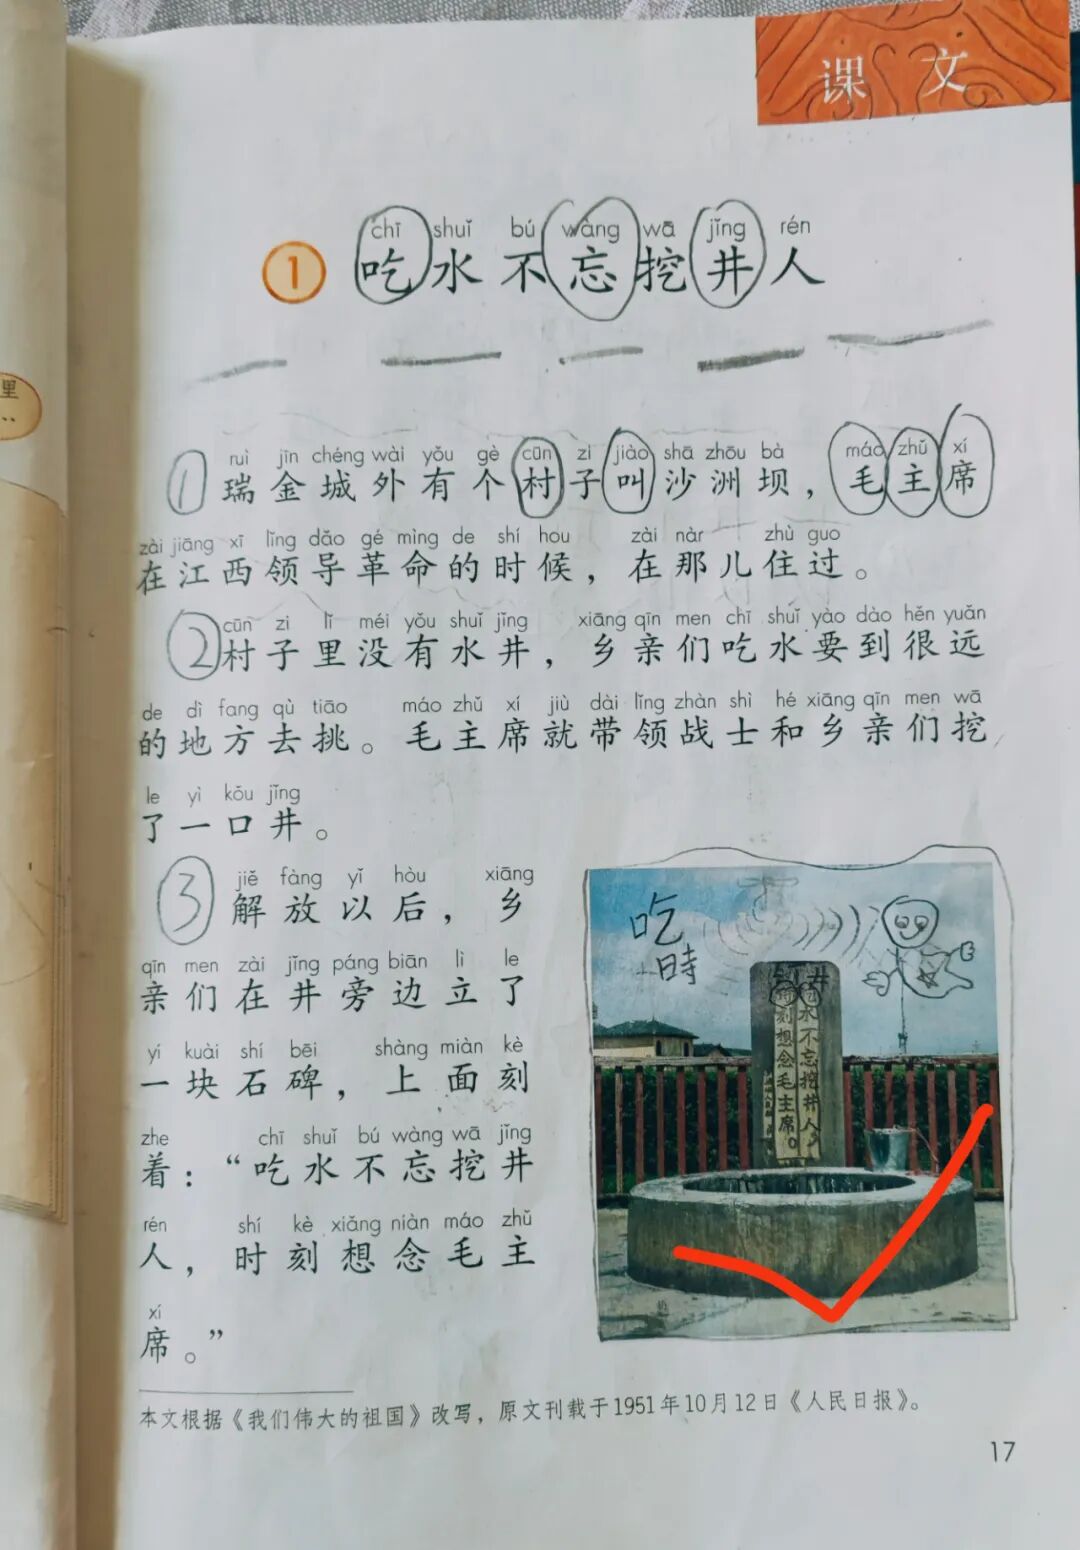 课文
chī shuǐ bú wàng wā jǐng rén
1 吃水不忘挖井人
里
..
ruì jīn chéng wài yǒu gè cūn zi jiào shā zhōu bà máo zhǔ xí
① 瑞金城外有个村子叫沙洲坝，毛主席
zài jiāng xī lǐng dǎo gé mìng de shí hou zài nàr zhù guo
在江西领导革命的时候，在那儿住过。
cūn zi lǐ méi yǒu shuǐ jǐng xiāng qīn men chī shuǐ yào dào hěn yuǎn
② 村子里没有水井，乡亲们吃水要到很远
de dì fang qù tiāo máo zhǔ xí jiù dài lǐng zhàn shì hé xiāng qīn men wā
的地方去挑。毛主席就带领战士和乡亲们挖
le yì kǒu jǐng
了一口井。
jiě fàng yǐ hòu xiāng
③ 解放以后，乡
qīn men zài jǐng páng biān lì le
亲们在井旁边立了
yí kuài shí bēi shàng miàn kè
一块石碑，上面刻
zhe chī shuǐ bú wàng wā jǐng
着：“吃水不忘挖井
rén shí kè xiǎng niàn máo zhǔ
人，时刻想念毛主
xí
席。”
吃
時
吃水不忘挖井人
時刻想念毛主席
井
本文根据《我们伟大的祖国》改写，原文刊载于1951年10月12日《人民日报》。
17